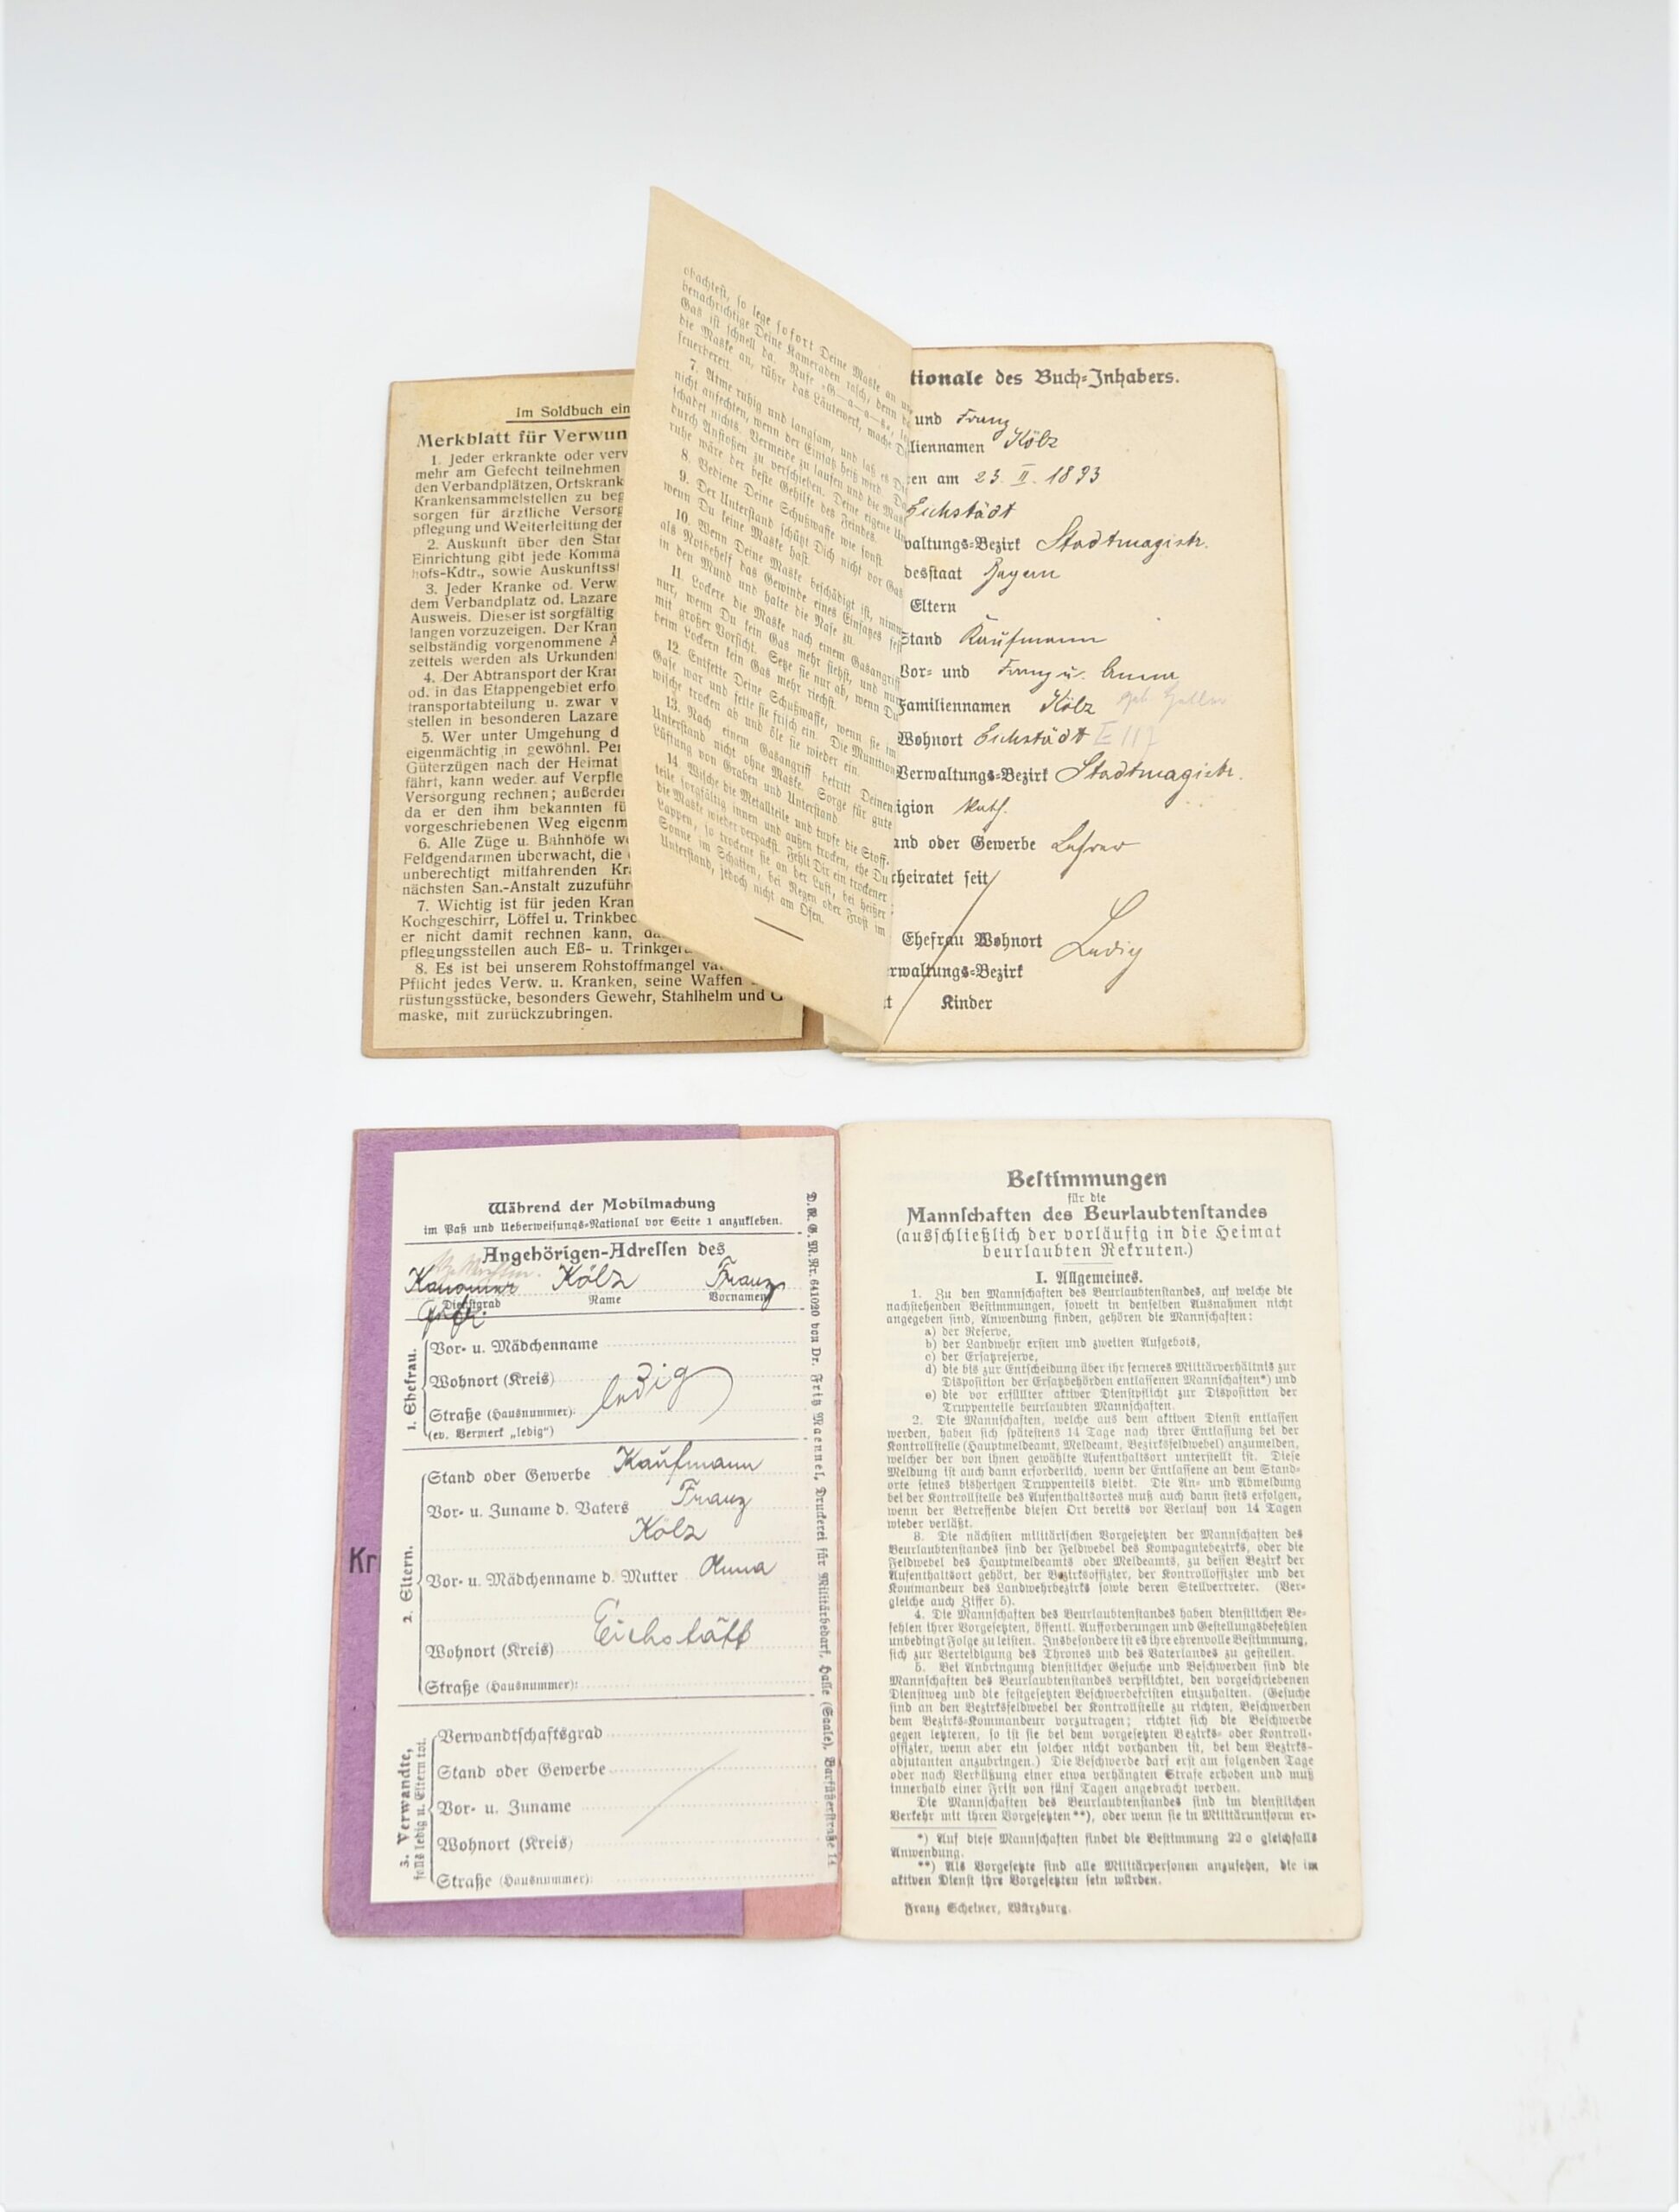 Im Soldbuch ein
Merkblatt für Verwun
1. Jeder erkrankte oder verw
mehr am Gefecht teilnehmen
den Verbandplätzen, Ortskrank
Krankensammelstellen zu beg
sorgen für ärztliche Versorg
pflegung und Weiterleitung der
2. Auskunft über den Stan
Einrichtung gibt jede Komma
hofs-Kdtr., sowie Auskunftsst
3. Jeder Kranke od. Verw
dem Verbandplatz od. Lazare
Ausweis. Dieser ist sorgfältig
langen vorzuzeigen. Der Kran
selbständig vorgenommene Ä
zettels werden als Urkunden
4. Der Abtransport der Kran
od. in das Etappengebiet erfo
transportabteilung u. zwar v
stellen in besonderen Lazare
5. Wer unter Umgehung d
eigenmächtig in gewöhnl. Per
Güterzügen nach der Heimat
fährt, kann weder auf Verpfle
Versorgung rechnen; außerder
da er den ihm bekannten fü
vorgeschriebenen Weg eigenm
6. Alle Züge u. Bahnhöfe we
Feldgendarmen überwacht, die
unberechtigt mitfahrenden Kra
nächsten San.-Anstalt zuzuführ
7. Wichtig ist für jeden Kran
Kochgeschirr, Löffel u. Trinkbec
er nicht damit rechnen kann, da
pflegungsstellen auch Eß- u. Trinkger
8. Es ist bei unserem Rohstoffmangel va
Pflicht jedes Verw. u. Kranken, seine Waffen
rüstungsstücke, besonders Gewehr, Stahlhelm und G
maske, mit zurückzubringen.
obachtest, so lege sofort Deine Maske an un
benachrichtige Deine Kameraden rasch, denn da
Gas ist schnell da. Rufe „G—a—a—s“, se
die Maske an, rühre das Läutewerk, mache Di
feuerbereit.
7. Atme ruhig und langsam, und laß es Di
nicht anfechten, wenn der Einsatz heiß wird. Da
schadet nichts. Vermeide zu laufen und die Mas
durch Anstoßen zu verschieben. Deine eigene Un
ruhe wäre der beste Gehilfe des Feindes.
8. Bediene Deine Schußwaffe wie sonst.
9. Der Unterstand schützt Dich nicht vor Gas
wenn Du keine Maske hast.
10. Wenn Deine Maske beschädigt ist, nimm
als Notbehelf das Gewinde eines Einsatzes fest
in den Mund und halte die Nase zu.
11. Lockere die Maske nach einem Gasangriff
nur, wenn Du kein Gas mehr siehst, und nur
mit großer Vorsicht. Setze sie nur ab, wenn Du
beim Lockern kein Gas mehr riechst.
12. Entfette Deine Schußwaffe, wenn sie im
Gase war und fette sie frisch ein. Die Munition
wische trocken ab und öle sie wieder ein.
13. Nach einem Gasangriff betritt Deinen
Unterstand nicht ohne Maske. Sorge für gute
Lüftung von Graben und Unterstand
14. Wische die Metallteile und tupfe die Stoff-
teile sorgfältig innen und außen trocken, ehe Du
die Maske wieder verpackst. Fehlt Dir ein trockener
Lappen, so trockne sie an der Luft, bei heißer
Sonne im Schatten, bei Regen oder Frost im
Unterstand, jedoch nicht am Ofen.
tionale des Buch-Inhabers.
und Franz
liennamen Kölz
en am 23. II. 1893
Eichstädt
waltungs-Bezirk Stadtmagistr.
desstaat Bayern
Eltern
Stand Kaufmann
Vor- und Franz u. Anna
Familiennamen Kölz geb.
Wohnort Eichstädt E 117
Verwaltungs-Bezirk Stadtmagistr.
igion kath.
and oder Gewerbe Lehrer
cheiratet seit
Ehefrau Wohnort Ledig
rwaltungs-Bezirk
t Kinder
Während der Mobilmachung
im Paß und Ueberweisungs-National vor Seite 1 anzukleben.
Angehörigen-Adressen des
Kanonier Kölz Franz
Dienstgrad Name Vorname
Gefr.
1. Ehefrau.
Vor- u. Mädchenname
Wohnort (Kreis) ledig
Straße (Hausnummer):
(ev. Vermerk „ledig“)
2. Eltern.
Stand oder Gewerbe Kaufmann
Vor- u. Zuname d. Vaters Franz
Kölz
Vor- u. Mädchenname d. Mutter Anna
Wohnort (Kreis) Eichstätt
Straße (Hausnummer):
3. Verwandte,
falls ledig u. Eltern tot.
Verwandtschaftsgrad
Stand oder Gewerbe
Vor- u. Zuname
Wohnort (Kreis)
Straße (Hausnummer):
D. R. G. M. Nr. 641020 von Dr. Fritz Maennel, Druckerei für Militärbedarf, Halle (Saale), Barfüßerstraße 14
Kr
Bestimmungen
für die
Mannschaften des Beurlaubtenstandes
(ausschließlich der vorläufig in die Heimat
beurlaubten Rekruten.)
I. Allgemeines.
1. Zu den Mannschaften des Beurlaubtenstandes, auf welche die
nachstehenden Bestimmungen, soweit in denselben Ausnahmen nicht
angegeben sind, Anwendung finden, gehören die Mannschaften:
a) der Reserve,
b) der Landwehr ersten und zweiten Aufgebots,
c) der Ersatzreserve,
d) die bis zur Entscheidung über ihr ferneres Militärverhältnis zur
Disposition der Ersatzbehörden entlassenen Mannschaften*) und
e) die vor erfüllter aktiver Dienstpflicht zur Disposition der
Truppenteile beurlaubten Mannschaften.
2. Die Mannschaften, welche aus dem aktiven Dienst entlassen
werden, haben sich spätestens 14 Tage nach ihrer Entlassung bei der
Kontrollstelle (Hauptmeldeamt, Meldeamt, Bezirksfeldwebel) anzumelden,
welcher der von ihnen gewählte Aufenthaltsort unterstellt ist. Diese
Meldung ist auch dann erforderlich, wenn der Entlassene an dem Stand-
orte seines bisherigen Truppenteils bleibt. Die An- und Abmeldung
bei der Kontrollstelle des Aufenthaltsortes muß auch dann stets erfolgen,
wenn der Betreffende diesen Ort bereits vor Verlauf von 14 Tagen
wieder verläßt.
3. Die nächsten militärischen Vorgesetzten der Mannschaften des
Beurlaubtenstandes sind der Feldwebel des Kompagniebezirks, oder die
Feldwebel des Hauptmeldeamts oder Meldeamts, zu dessen Bezirk der
Aufenthaltsort gehört, der Bezirksoffizier, der Kontrolloffizier und der
Kommandeur des Landwehrbezirks sowie deren Stellvertreter. (Ver-
gleiche auch Ziffer 5).
4. Die Mannschaften des Beurlaubtenstandes haben dienstlichen Be-
fehlen ihrer Vorgesetzten, öffentl. Aufforderungen und Gestellungsbefehlen
unbedingt Folge zu leisten. Insbesondere ist es ihre ehrenvolle Bestimmung,
sich zur Verteidigung des Thrones und des Vaterlandes zu gestellen.
5. Bei Anbringung dienstlicher Gesuche und Beschwerden sind die
Mannschaften des Beurlaubtenstandes verpflichtet, den vorgeschriebenen
Dienstweg und die festgesetzten Beschwerdefristen einzuhalten. (Gesuche
sind an den Bezirksfeldwebel der Kontrollstelle zu richten, Beschwerden
dem Bezirks-Kommandeur vorzutragen; richtet sich die Beschwerde
gegen letzteren, so ist sie bei dem vorgesetzten Bezirks- oder Kontroll-
offizier, wenn aber ein solcher nicht vorhanden ist, bei dem Bezirks-
adjutanten anzubringen.) Die Beschwerde darf erst am folgenden Tage
oder nach Verbüßung einer etwa verhängten Strafe erhoben und muß
innerhalb einer Frist von fünf Tagen angebracht werden.
Die Mannschaften des Beurlaubtenstandes sind im dienstlichen
Verkehr mit ihren Vorgesetzten**), oder wenn sie in Militäruniform er-
*) Auf diese Mannschaften findet die Bestimmung 22 o gleichfalls
Anwendung.
**) Als Vorgesetzte sind alle Militärpersonen anzusehen, die im
aktiven Dienst ihre Vorgesetzten sein würden.
Franz Scheiner, Würzburg.